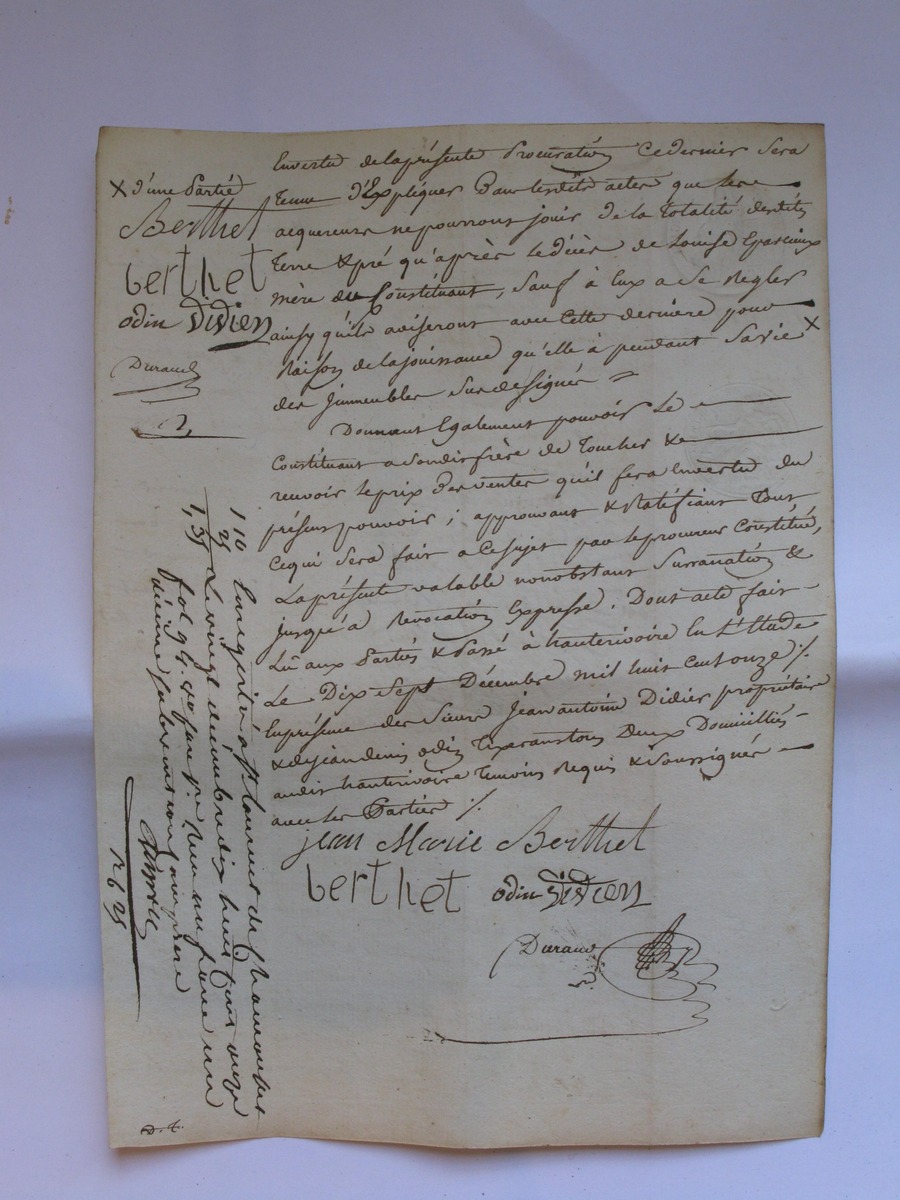 En vertu de la présente Procuration ce dernier sera
tenu d'Expliquer dans lesdits actes que les
acquereurs ne pourront jouir de la totalité desdites
terre & pré qu'après le décès de Louise Eparcieux
mère du Constituant, sauf à Eux a se Regler
ainsy qu'ils aviseront avec cette dernière pour
Raison de la jouissance qu'elle à pendant sa vie X
des jmmeubles susdesignés =
Donnant Egalement pouvoir Le
Constituant a sondit frère de Toucher &
recevoir le prix des ventes qu'il fera En vertu du
présent pouvoir ; approuvant & Ratifiant Tout
ce qui sera fait a ce sujet par le procureur Constitué,
La présente valable nonobstant surranation &
jusqu'à Revocation Expresse. Dont acte fait
Lû aux Parties & Passé à hauterivoire En L'Etude
Le Dix Sept Décembre mil huit cent onze ./.
En présence des Sieurs Jean antoine Didier propriétaire
& de jean denis odin Tous Deux Domiciliés
audit hauterivoire Temoins Requis & Soussignés
avec les Parties ./.
jean Marie Berthet
berthet odin Didien
Durand
X d'une Partie
Berthet
berthet
odin Didien
Durand
1 10
25
1,35
Enregistré à St Laurent de Chamousset
Le vingt décembre dix huit cent onze
fol 96 Reçu un franc un
décime subvention comprise
r 6 25
D. t.